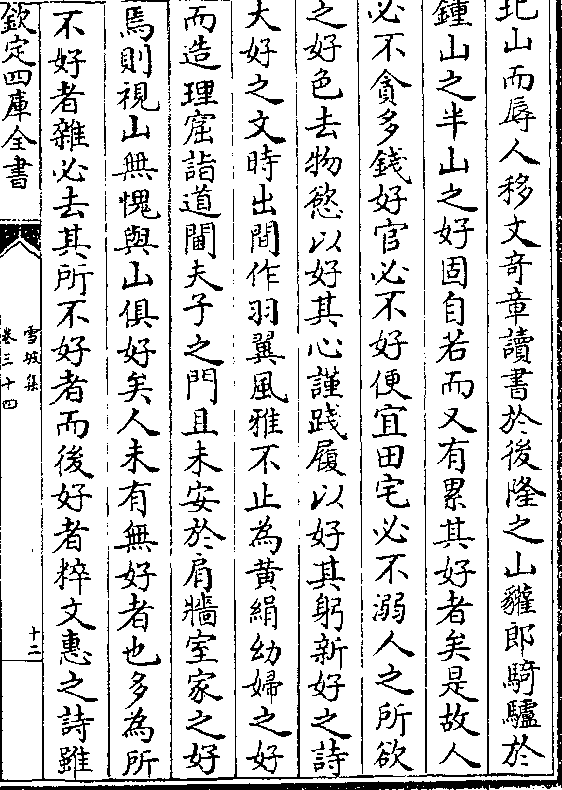 北山而辱人移文奇章讀書於後隆之山獾郎騎驢於
鍾山之半山之好固自若而又有累其好者矣是故人
必不貪多錢好官必不好便宜田宅必不溺人之所欲
之好色去物慾以好其心謹踐履以好其躬新好之詩
大好之文時出間作羽翼風雅不止為黄絹幼婦之好
而造理窟詣道閫夫子之門且未安於肩牆室家之好
焉則視山無愧與山俱好矣人未有無好者也多為所
不好者雜必去其所不好者而後好者粹文惠之詩雖
欽定四庫全書
雪坡集
卷三十四
十二